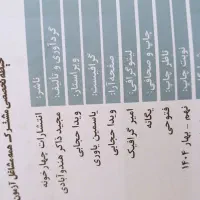 حیطه تخصصی مشترک همه مشاغل آزمون
ناشر: انتشارات چهارخونه
گردآوری و تألیف: مجید ذاکر هندوآبادی
ویراستار: ویدا حجابی
گرافیست: یاسمین یاوری
صفحه‌آرا: ویدا حجابی
لیتوگرافی: امیر گرافیک
چاپ و صحافی: یگانه
ناظر چاپ: فتوحی
نوبت چاپ: نهم - بهار ۱۴۰۴